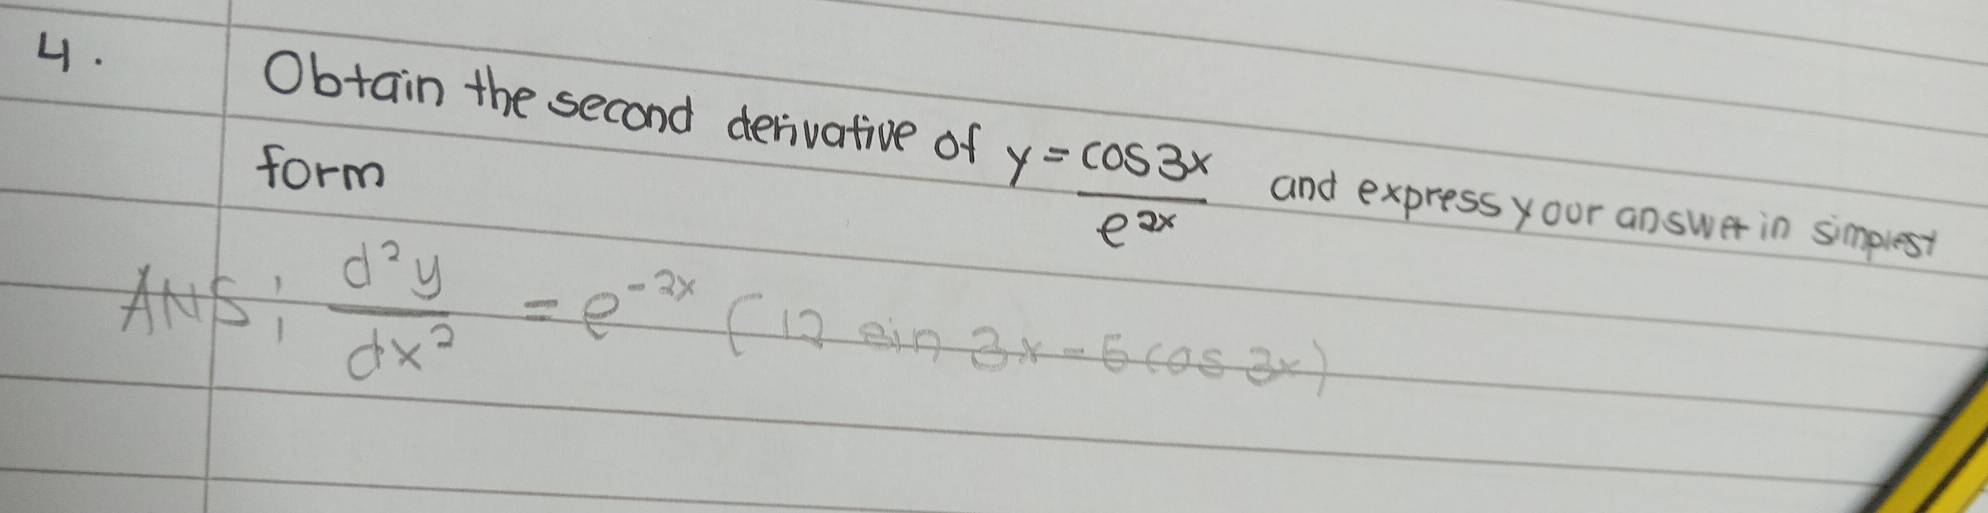 4. Obtain the second derivative of y = cos3x / e^2x and express your answer in simplest
form
ANS: d²y/dx² = e^-2x (12 sin 3x - 5 cos 3x)